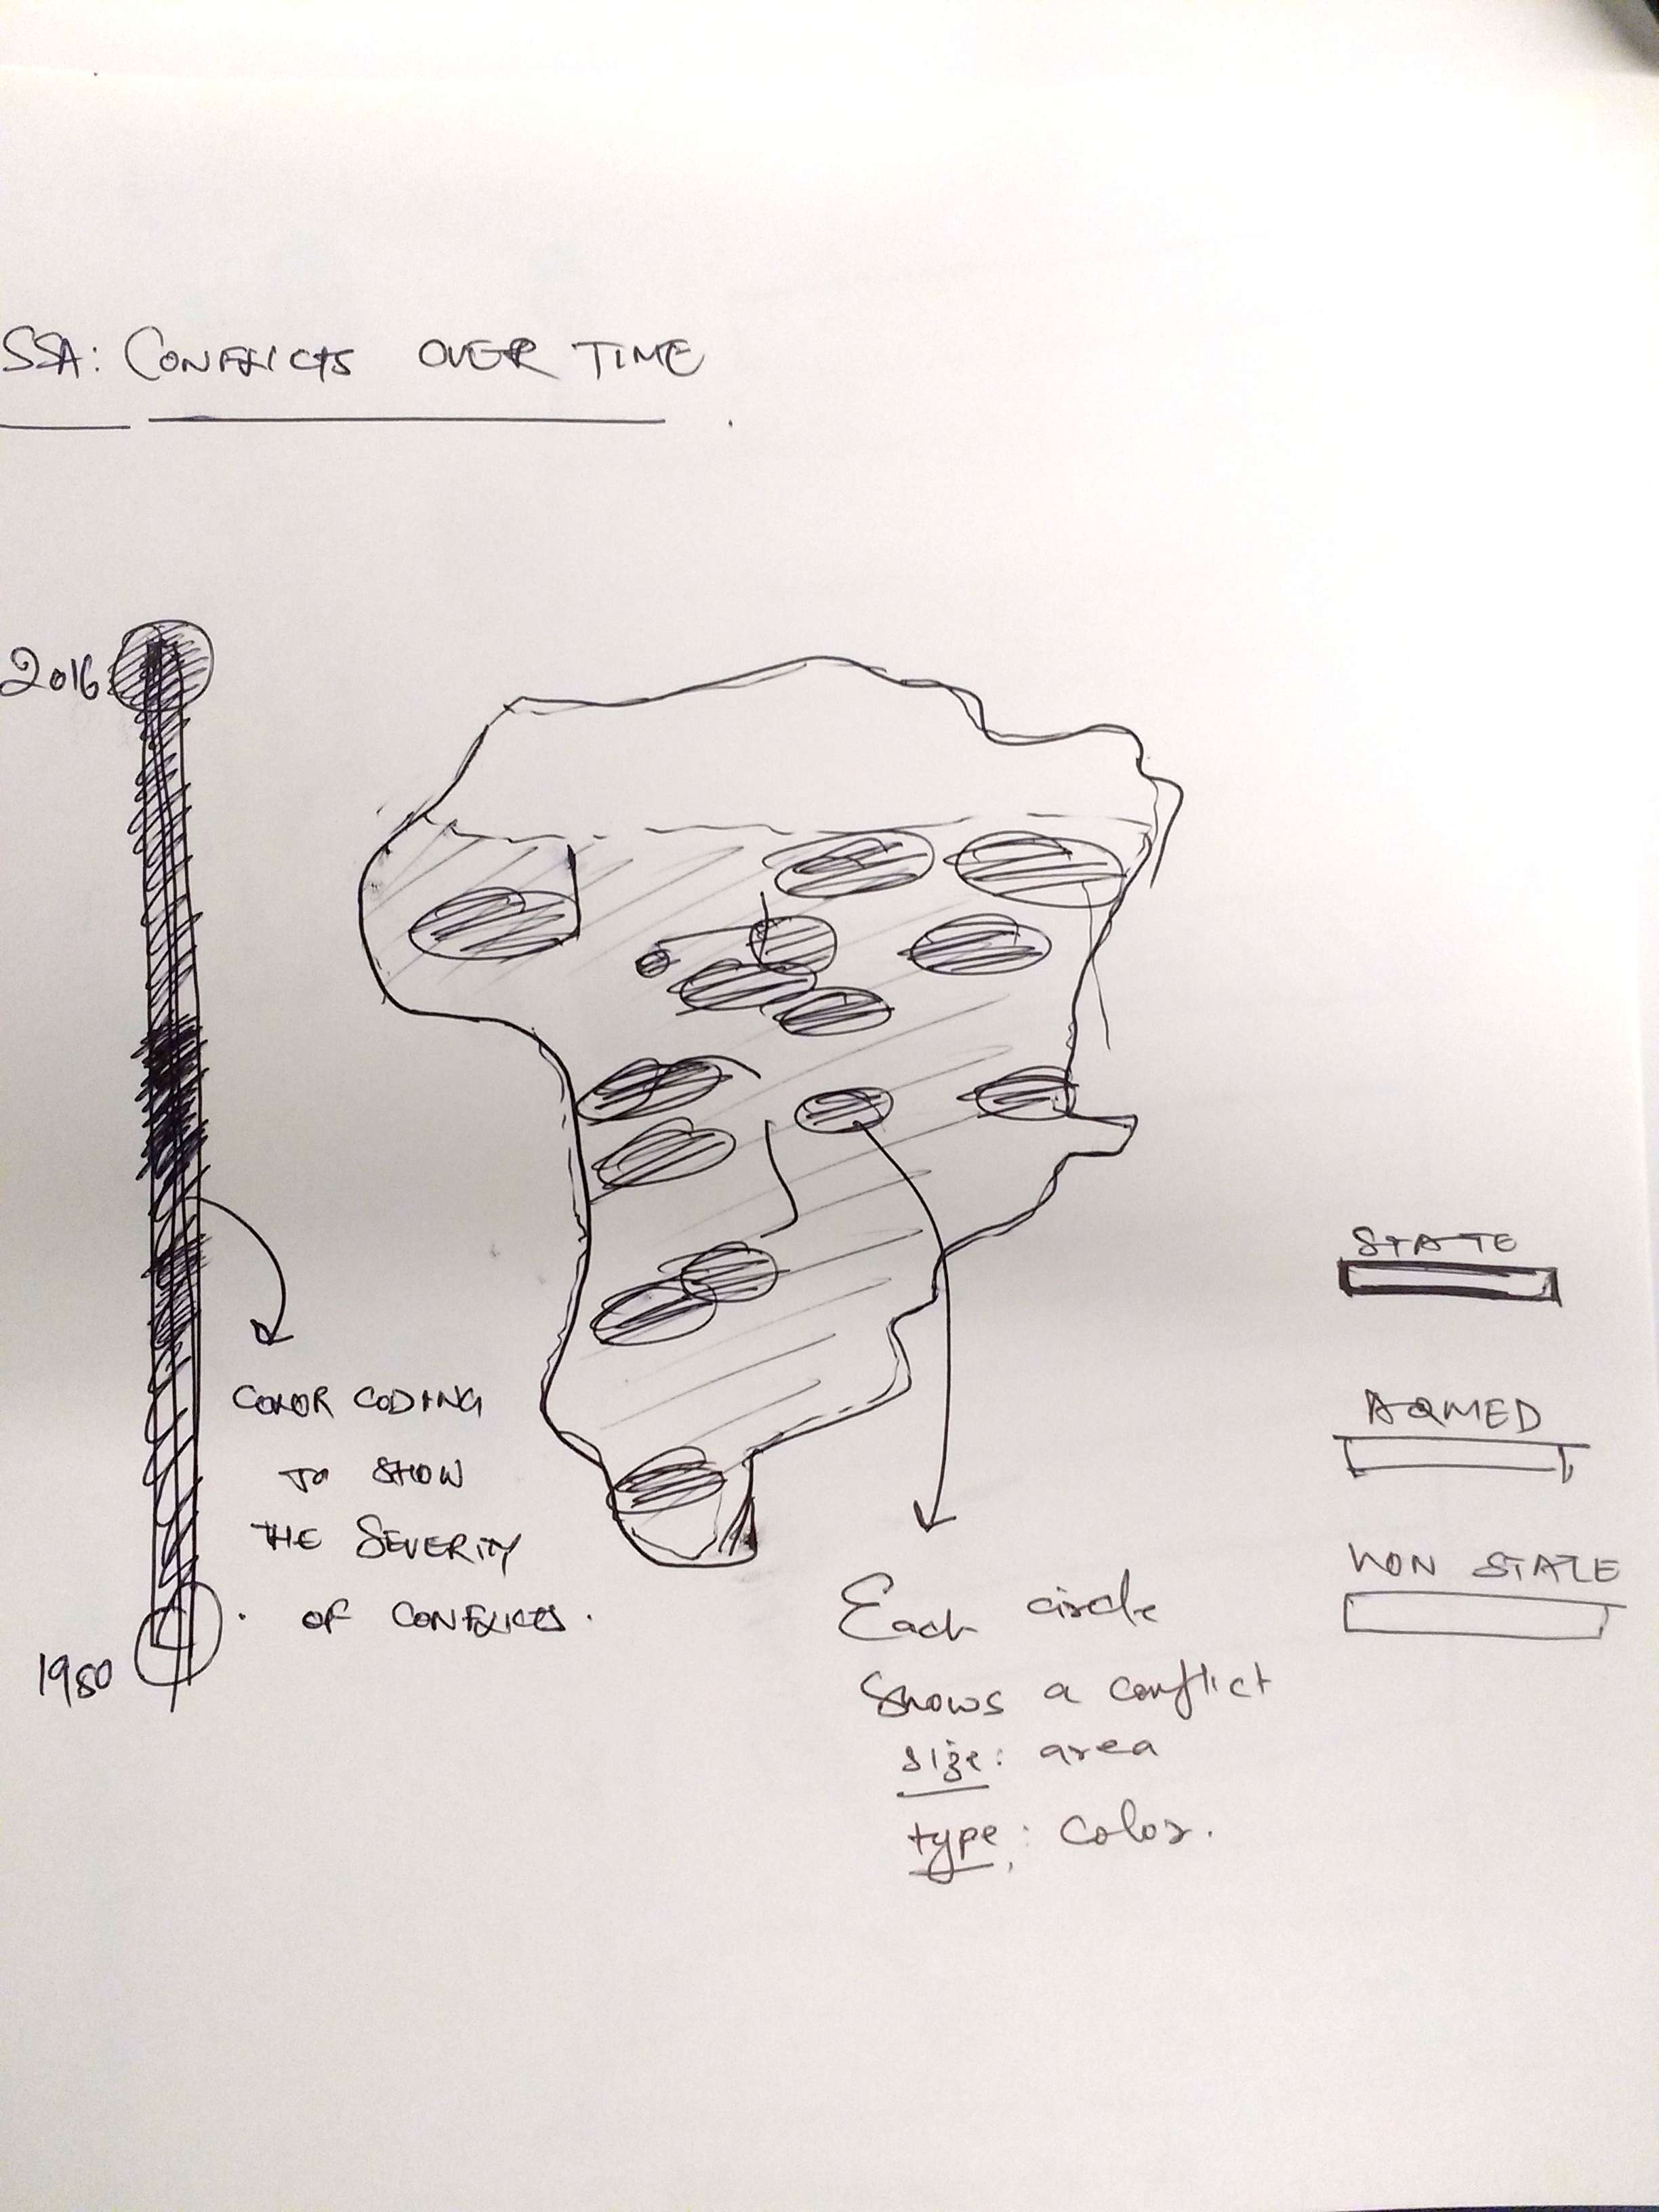 SSA: CONFLICTS OVER TIME
2016
1980
COLOR CODING
TO SHOW
THE SEVERITY
OF CONFLICTS.
Each circle
Shows a conflict
size: area
type: Color.
STATE
ARMED
NON STATE